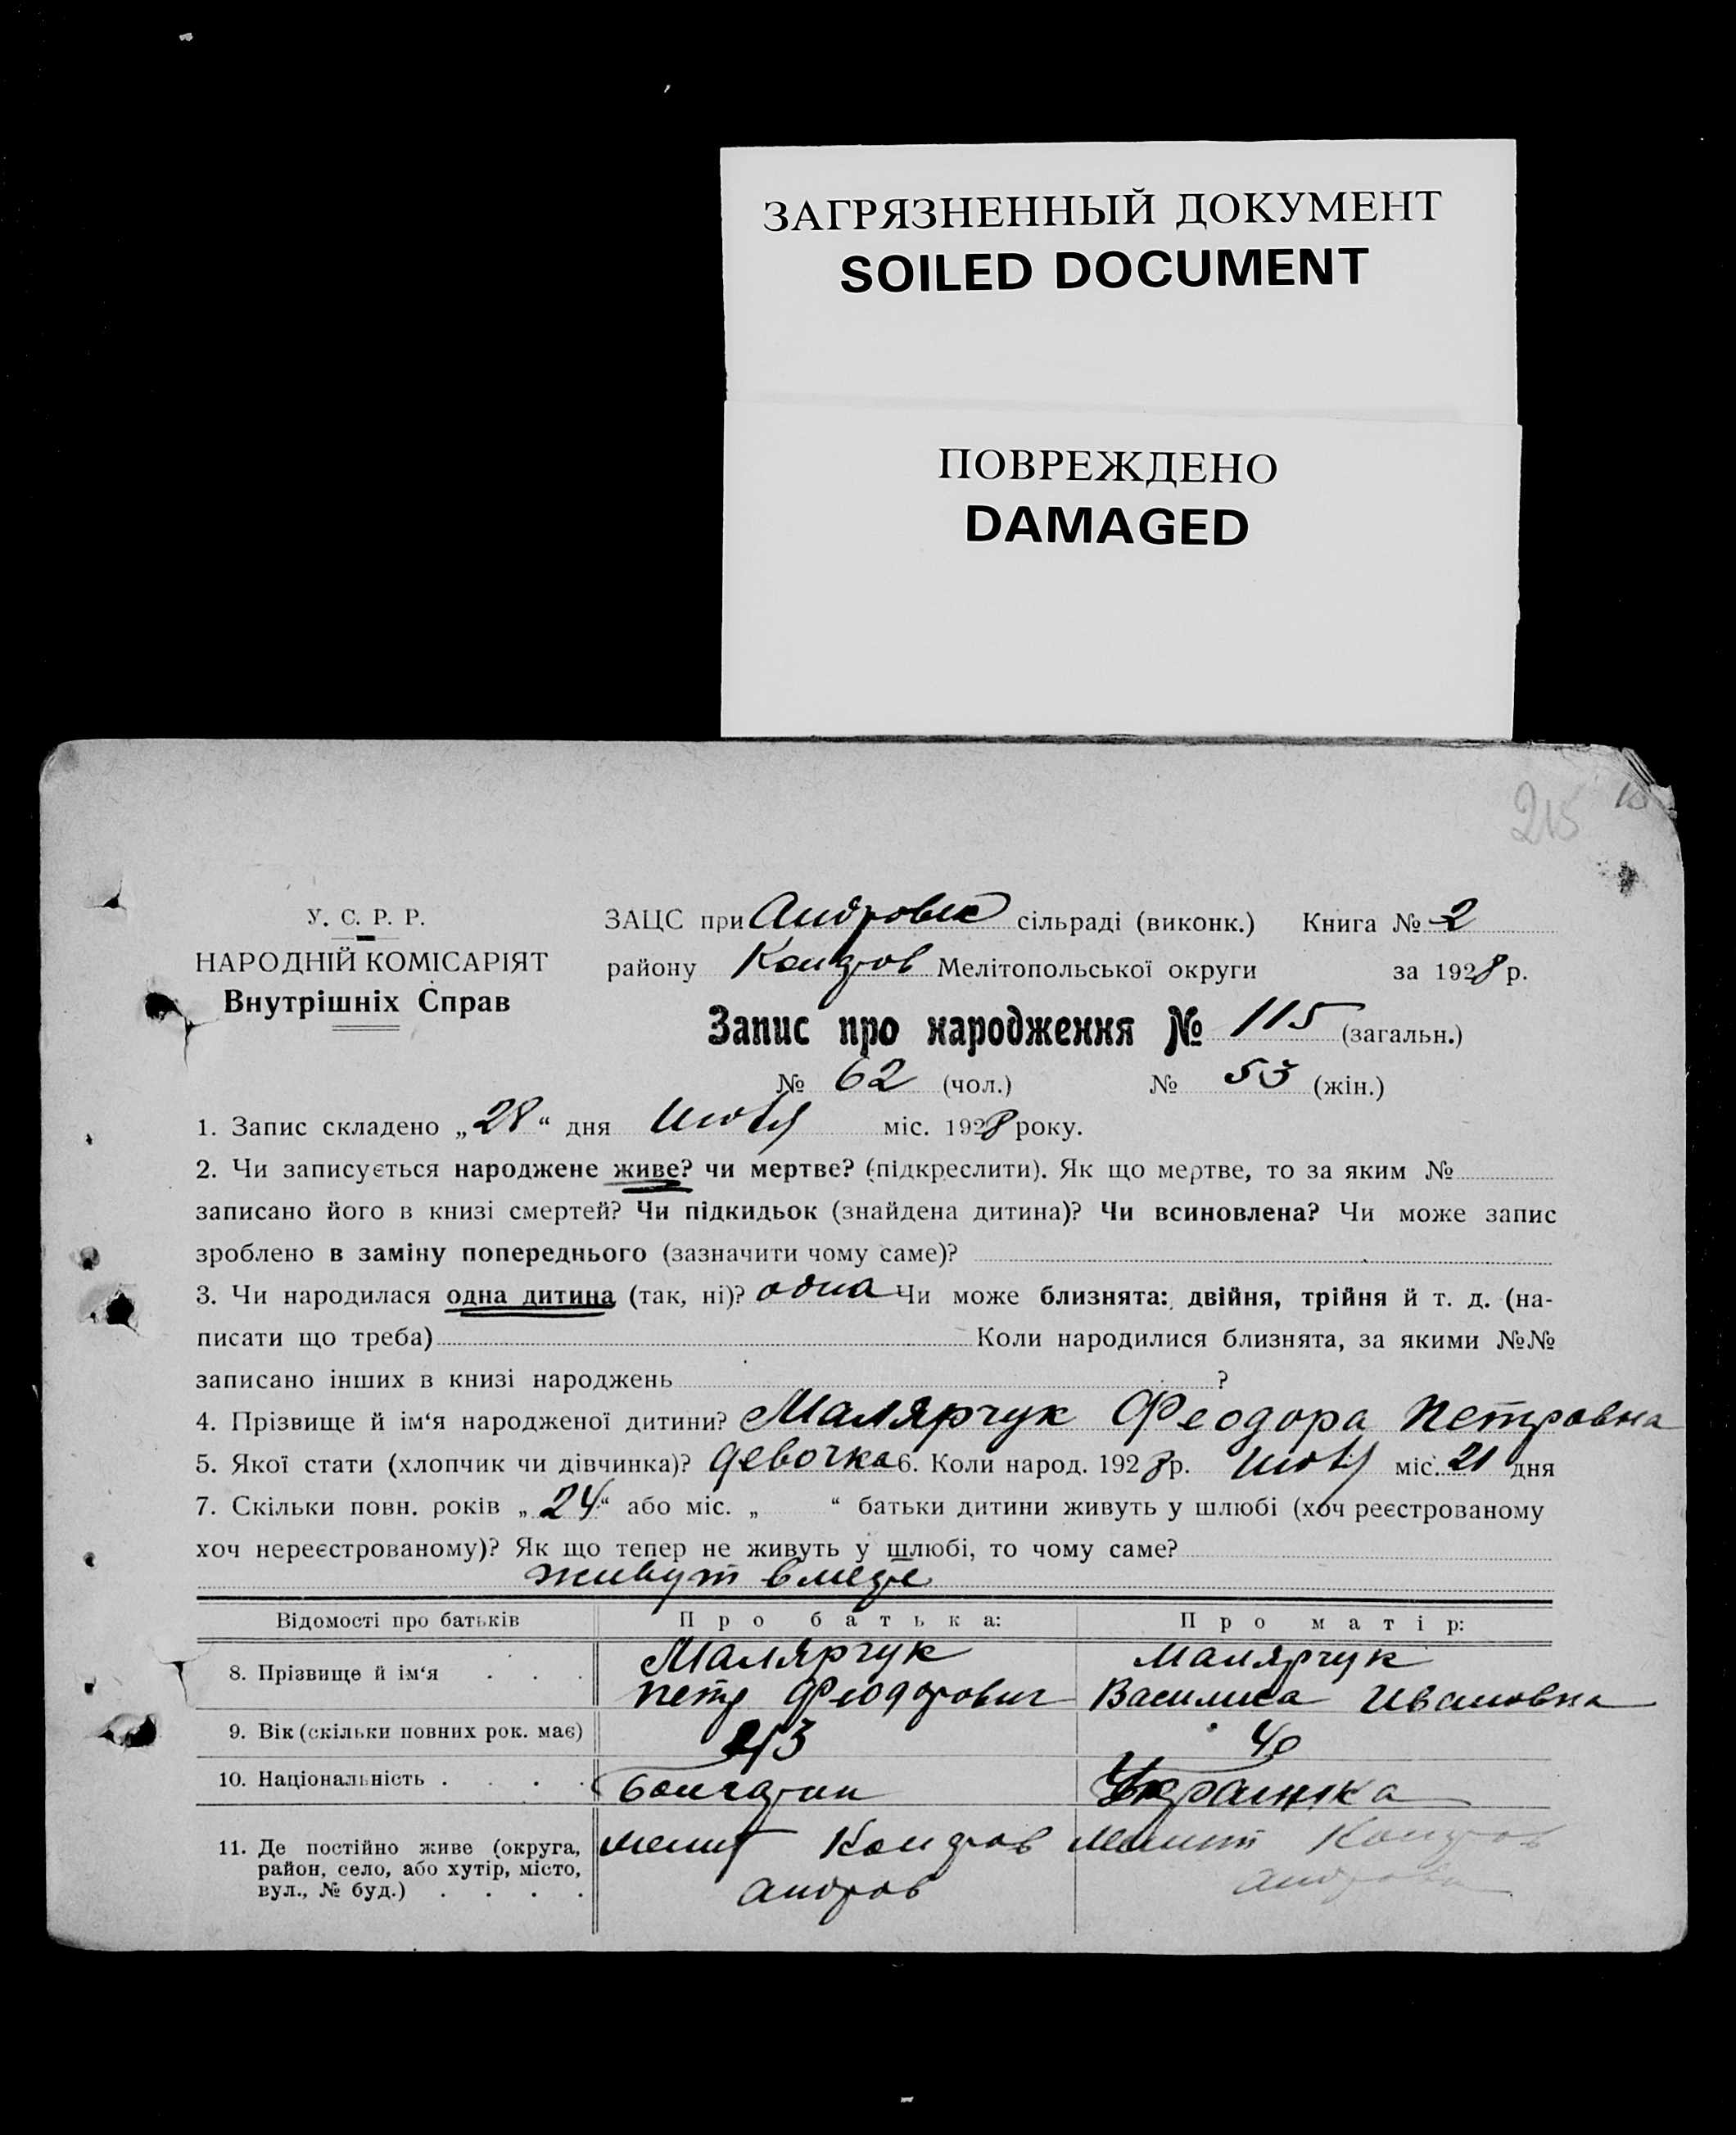 ЗАГРЯЗНЕННЫЙ ДОКУМЕНТ
SOILED DOCUMENT
ПОВРЕЖДЕНО
DAMAGED
215
У. С. Р. Р.
НАРОДНІЙ КОМІСАРІЯТ
Внутрішніх Справ
ЗАЦС при Андровке сільраді (виконк.) Книга № 2
району Конгров Мелітопольської округи за 1928 р.
Запис про народження № 115 (загальн.)
№ 62 (чол.) № 53 (жін.)
1. Запис складено „28“ дня Июля міс. 1928 року.
2. Чи записується народжене живе? чи мертве? (підкреслити). Як що мертве, то за яким №
записано його в книзі смертей? Чи підкидьок (знайдена дитина)? Чи всиновлена? Чи може запис
зроблено в заміну попереднього (зазначити чому саме)?
3. Чи народилася одна дитина (так, ні)? одна Чи може близнята: двійня, трійня й т. д. (на-
писати що треба) Коли народилися близнята, за якими №№
записано інших в книзі народжень ?
4. Прізвище й ім‘я народженої дитини? Малярчук Феодора Петровна
5. Якої стати (хлопчик чи дівчинка)? девочка 6. Коли народ. 1928 р. Июля міс. 21 дня
7. Скільки повн. років „24“ або міс. „ “ батьки дитини живуть у шлюбі (хоч реєстрованому
хоч нереєстрованому)? Як що тепер не живуть у шлюбі, то чому саме?
живут вместе
Відомості про батьків Про батька: Про матір:
8. Прізвище й ім‘я . . . Малярчук Петр Феодорович Малярчук Василиса Ивановна
9. Вік (скільки повних рок. має) 43 40
10. Національність . . . . болгарин Украинка
11. Де постійно живе (округа, район, село, або хутір, місто, вул., № буд.) . . . . Мелит Конгров Андров Мелит Конгров Андровк